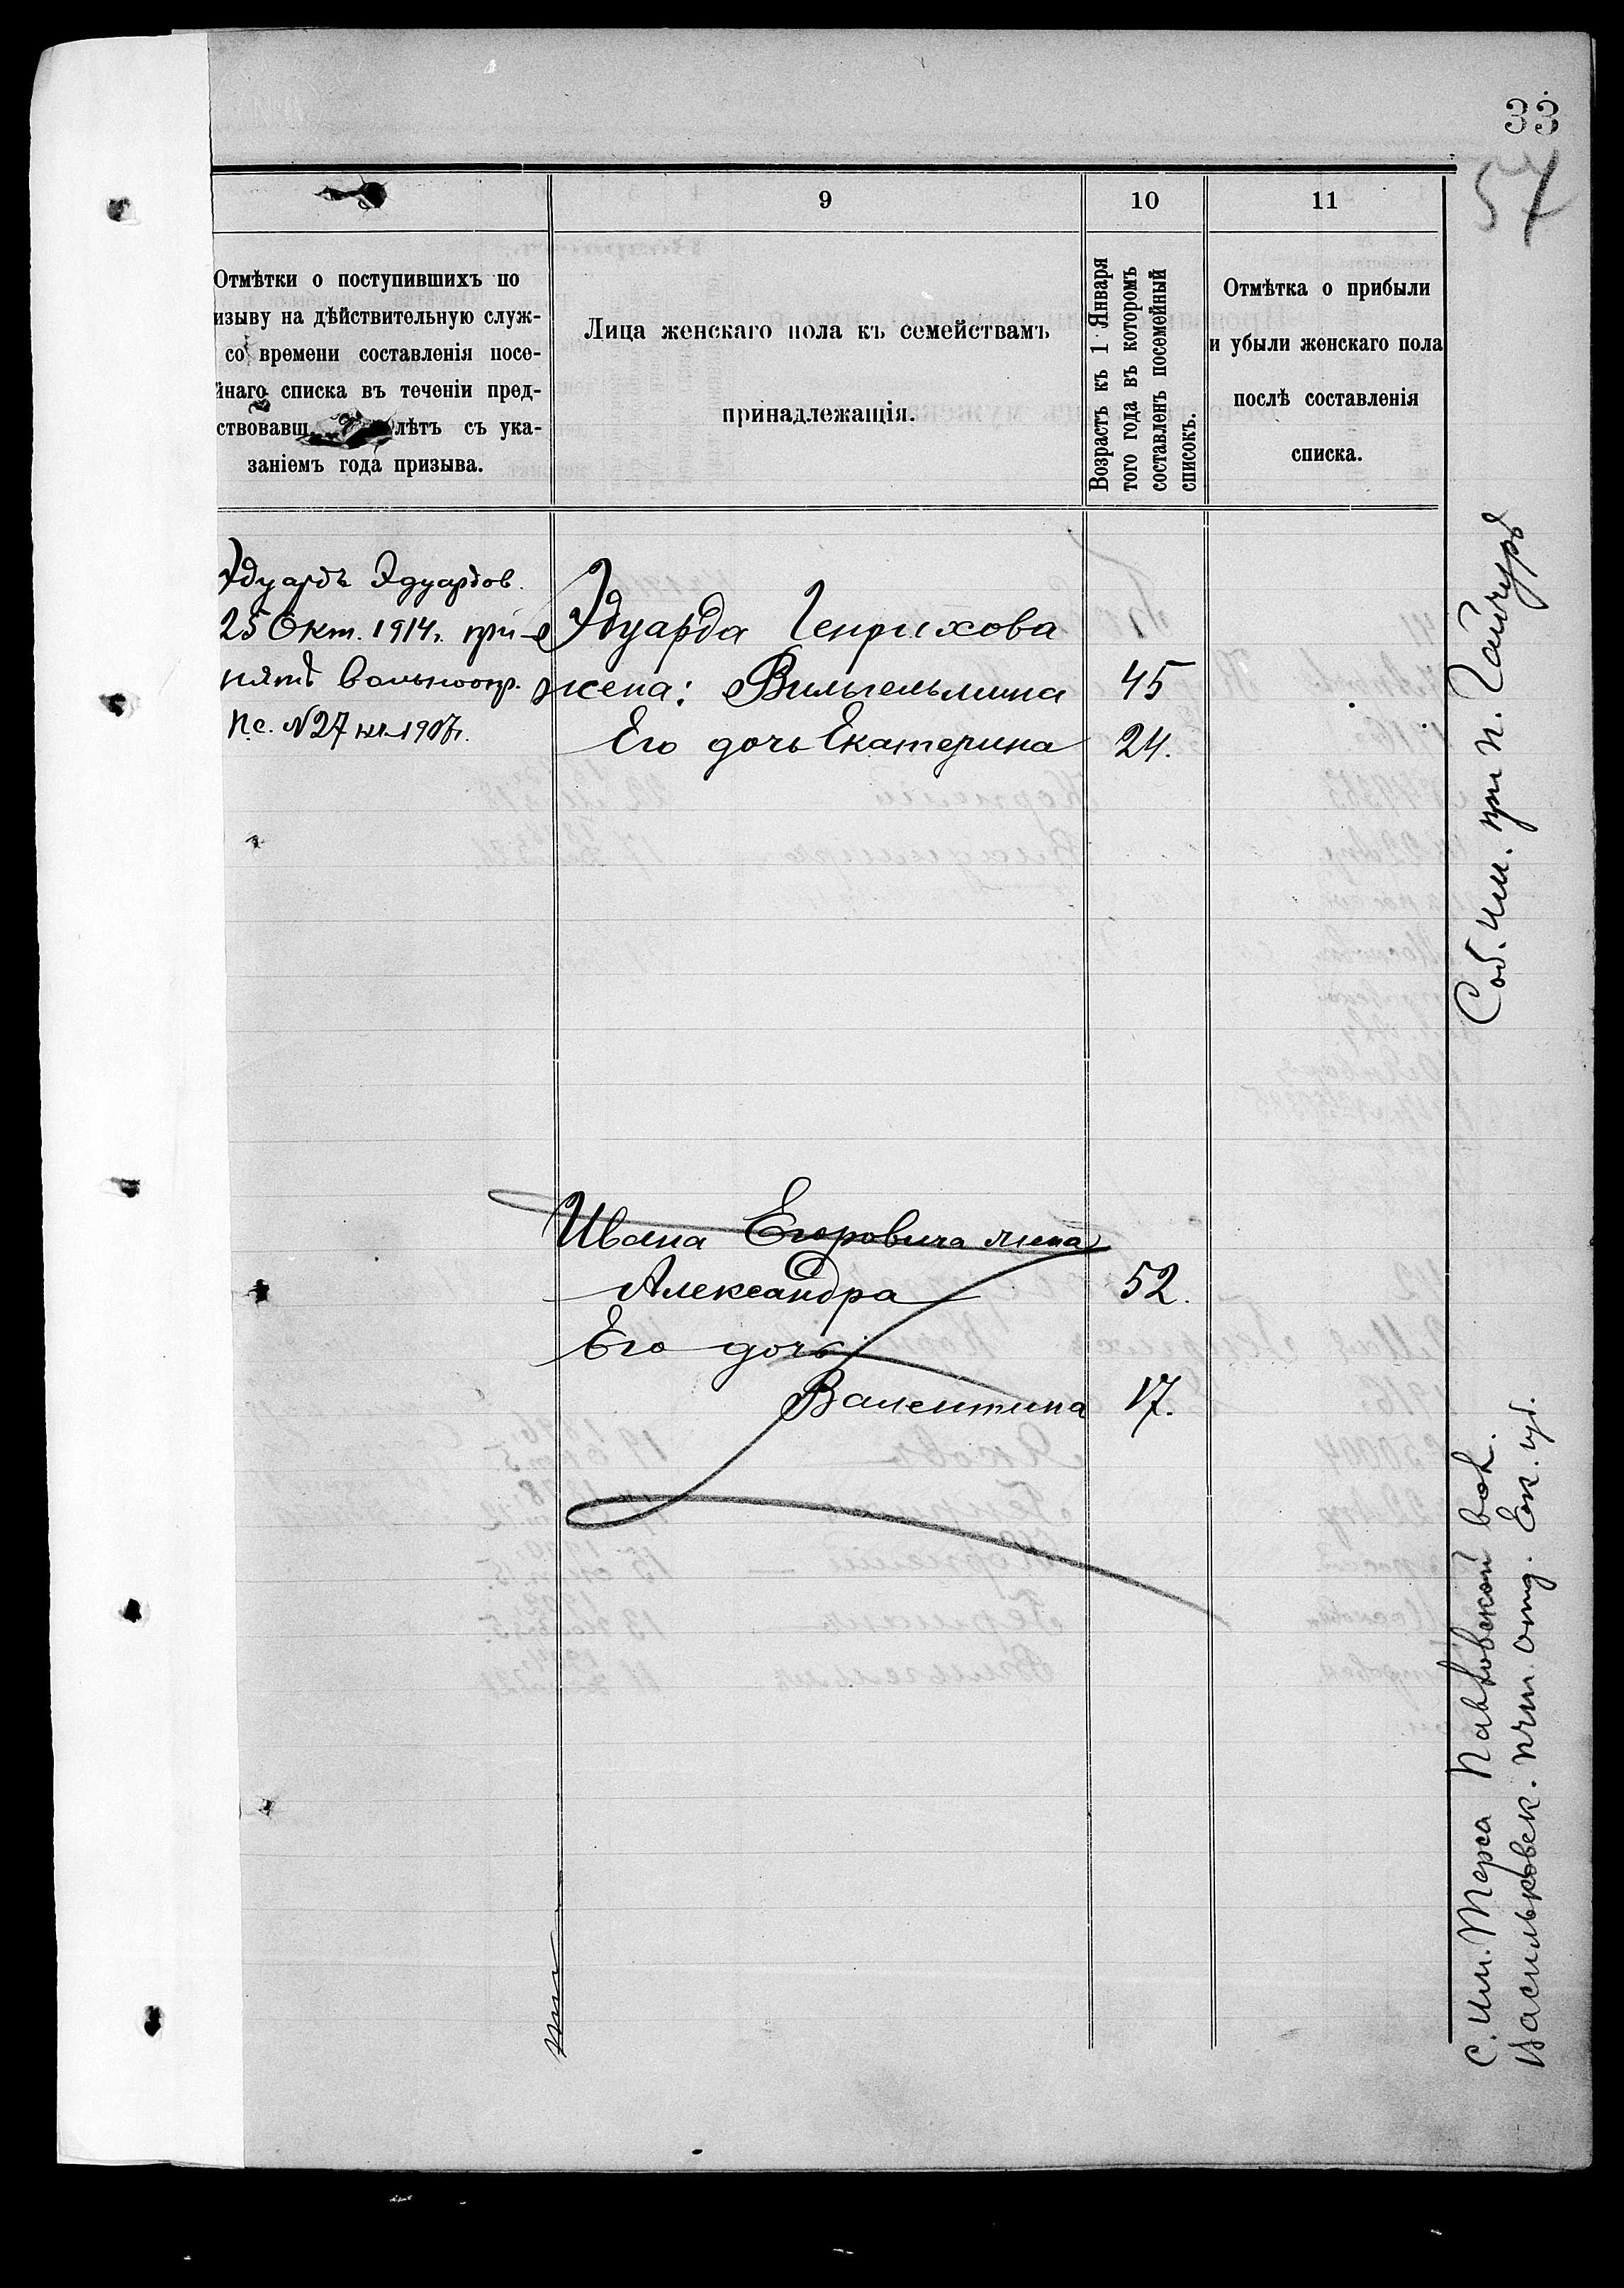 33
57
9
10
11
Отмѣтки о поступившихъ по
изыву на дѣйствительную служ-
со времени составленія посе-
йнаго списка въ теченіи пред-
ствовавш лѣтъ съ ука-
заніемъ года призыва.
Лица женскаго пола къ семействамъ
принадлежащія.
Возрастъ къ 1 Января
того года въ которомъ
составленъ посемейный
списокъ.
Отмѣтка о прибыли
и убыли женскаго пола
послѣ составленія
списка.
Эдуардъ Эдуардов.
25 Окт. 1914г. при-
нятъ вольноопр.
№27 1907г.
Эдуарда Генрихова
жена: Вильгельмина 45
Его дочь Екатерина 24.
Ивана Егоровича жена
Александра 52.
Его дочь
Валентина 17.
Соб. им. при п. Гайчуръ
С. им. Терса Павловской вол.
Васильковск. поч. отд. Ек. губ.